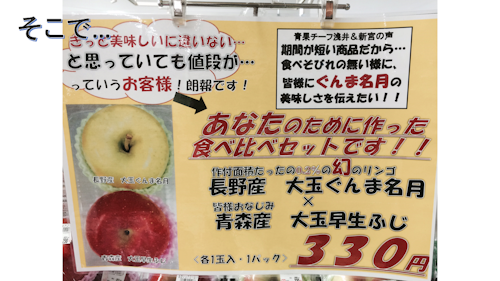 そこで…
きっと美味しいに違いない…
と思っていても値段が…
っていうお客様！朗報です！
青果チーフ浅井＆新宮の声
期間が短い商品だから…
食べそびれの無い様に、
皆様にぐんま名月の
美味しさを伝えたい！！
あなたのために作った
食べ比べセットです！！
作付面積たったの の幻のリンゴ
長野産 大玉ぐんま名月
×
皆様おなじみ
青森産 大玉早生ふじ
＜各1玉入・1パック＞
330円
長野産 大玉ぐんま名月
青森産 大玉早生ふじ